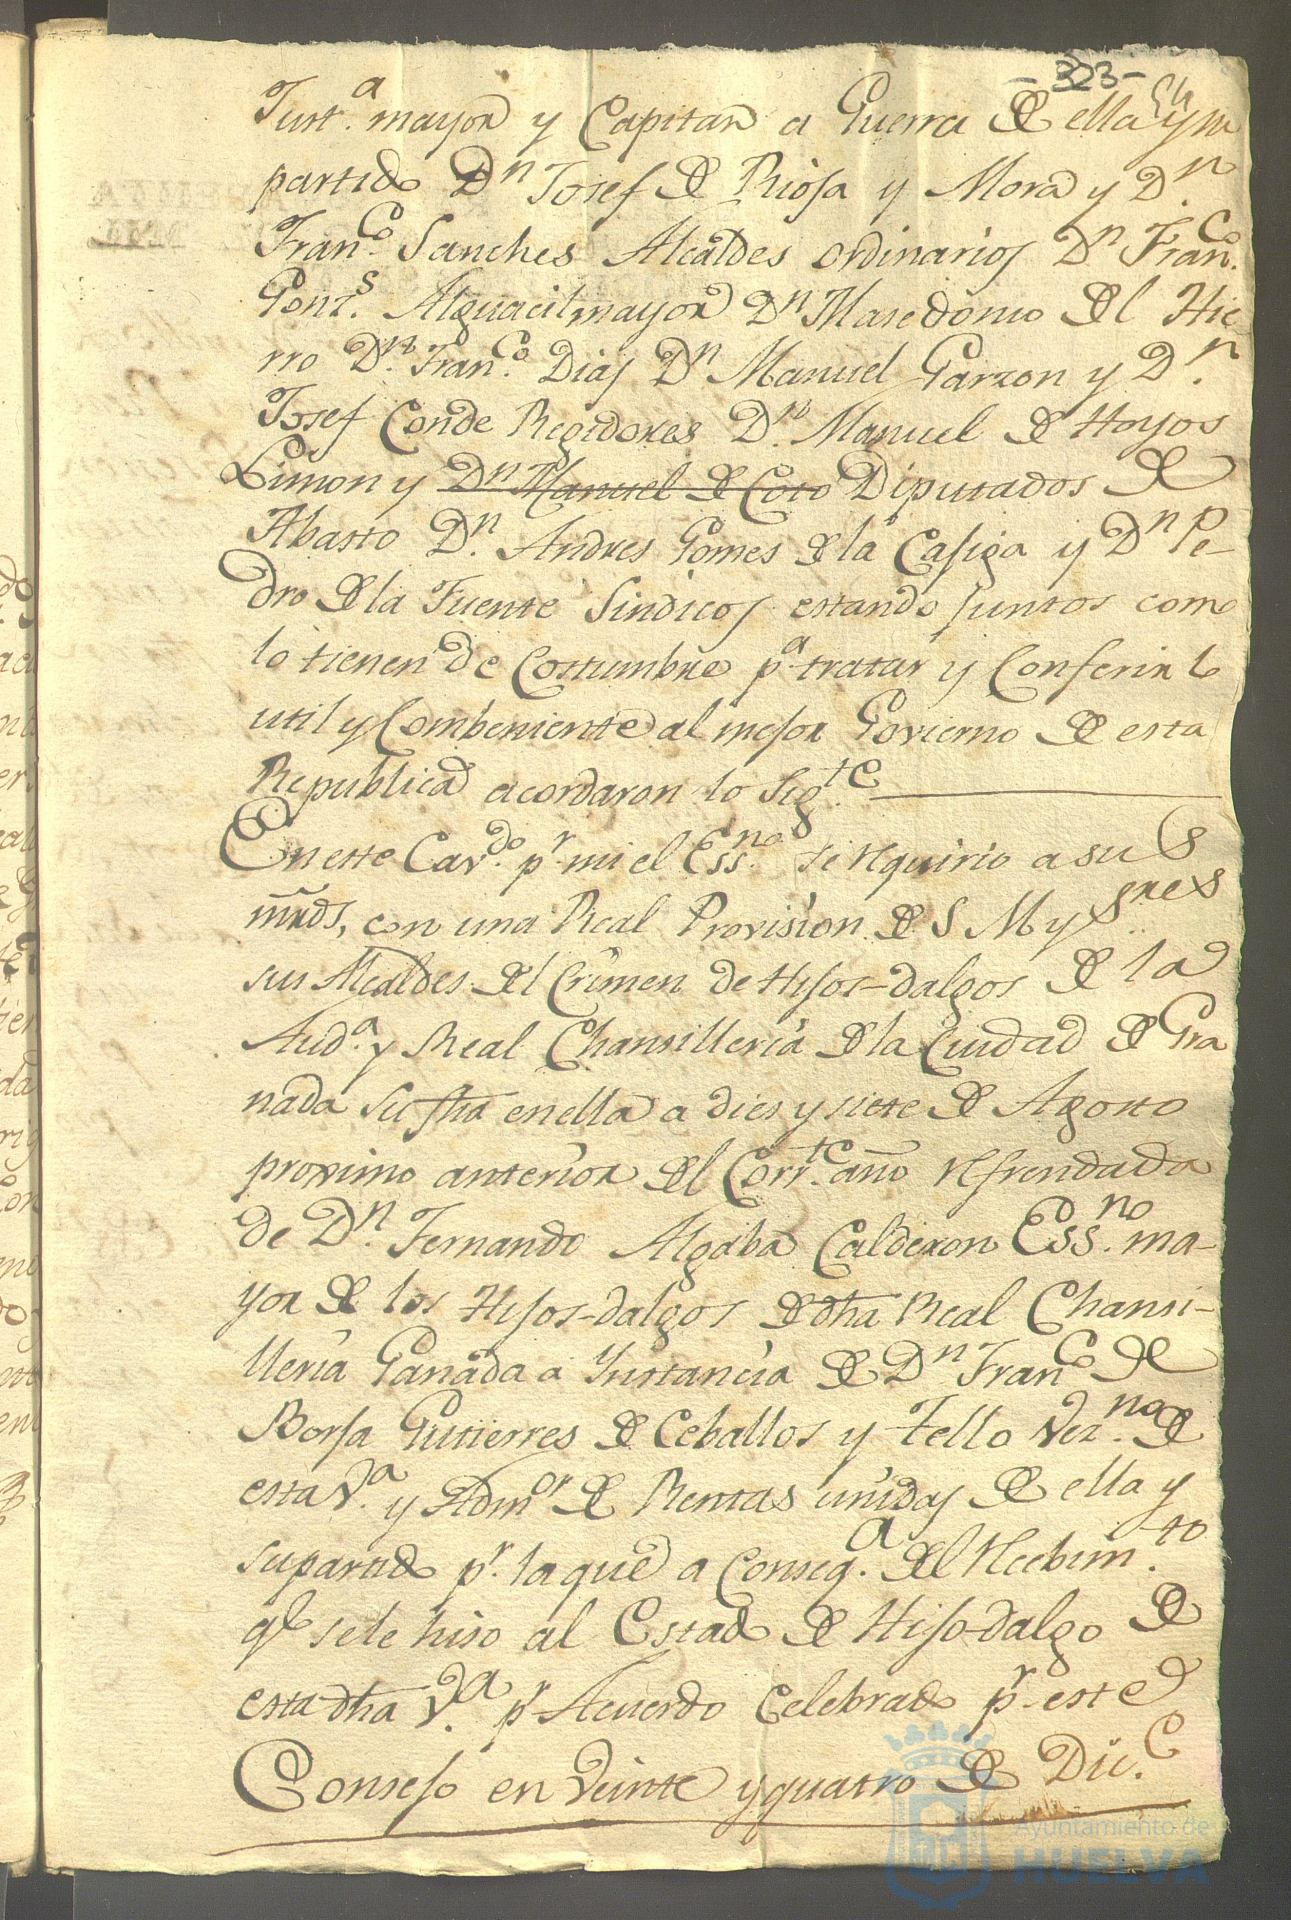 -323-
Just.ª mayor y Capitan a Guerra de ella y su
partido Dn Josef de Riosa y Mora y Dn
Franco. Sanches Alcaldes ordinarios Dn Franco.
Gonzs. Alguacil mayor Dn Masedonio del Hie
rro Dn. Franco. Dias Dn Manuel Garzon y Dn.
Josef Conde Regidores Dn. Manuel de Hoyos
Limon y Dn Manuel de Coto Diputados de
Abasto Dn. Andres Gomes de la Casiga y Dn Pe-
dro de la Fuente Sindicos estando juntos como
lo tienen de Costumbre pa. tratar y Conferir lo
util y Combeniente al mejor Govierno de esta
Republica acordaron lo sigte.
En este Cavdo. pr. mi el Essno. se requirio a sus
mrds, con una Real Provision de S M y Sres
sus Alcaldes del Crimen de Hijos-dalgos de la
Auda. y Real Chansilleria de la Ciudad de Gra
nada su fha en ella a dies y siete de Agosto
proximo anterior del Corrte. año refrendada
de Dn. Fernando Algaba Calderon Essno. ma-
yor de los Hijos-dalgos de dha Real Chansi-
lleria Ganada a Ynstancia de Dn Franco de
Borja Gutierres de Ceballos y Tello Vezno. de
esta Va. y Admor de Rentas unidas de ella y
su partido pr. la que a Consega. del Recbimto.
qe se le hiso al Estado de Hijo-dalgo de
esta dha Va. pr Acuerdo Celebrado pr este
Consejo en veinte y quatro de Dice.
Ayuntamiento de
HUELVA